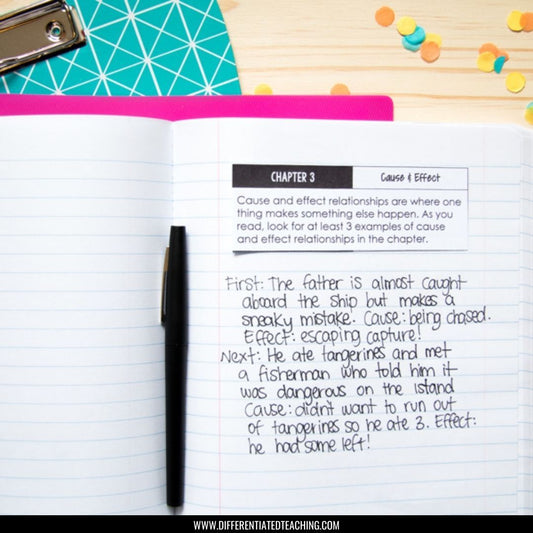 CHAPTER 3
Cause & Effect
Cause and effect relationships are where one
thing makes something else happen. As you
read, look for at least 3 examples of cause
and effect relationships in the chapter.
First: The father is almost caught
aboard the ship but makes a
sneaky mistake. Cause: being chased.
Effect: escaping capture!
Next: He ate tangerines and met
a fisherman who told him it
was dangerous on the Island
Cause: didn't want to run out
of tangerines so he ate 3. Effect:
he had some left!
WWW.DIFFERENTIATEDTEACHING.COM